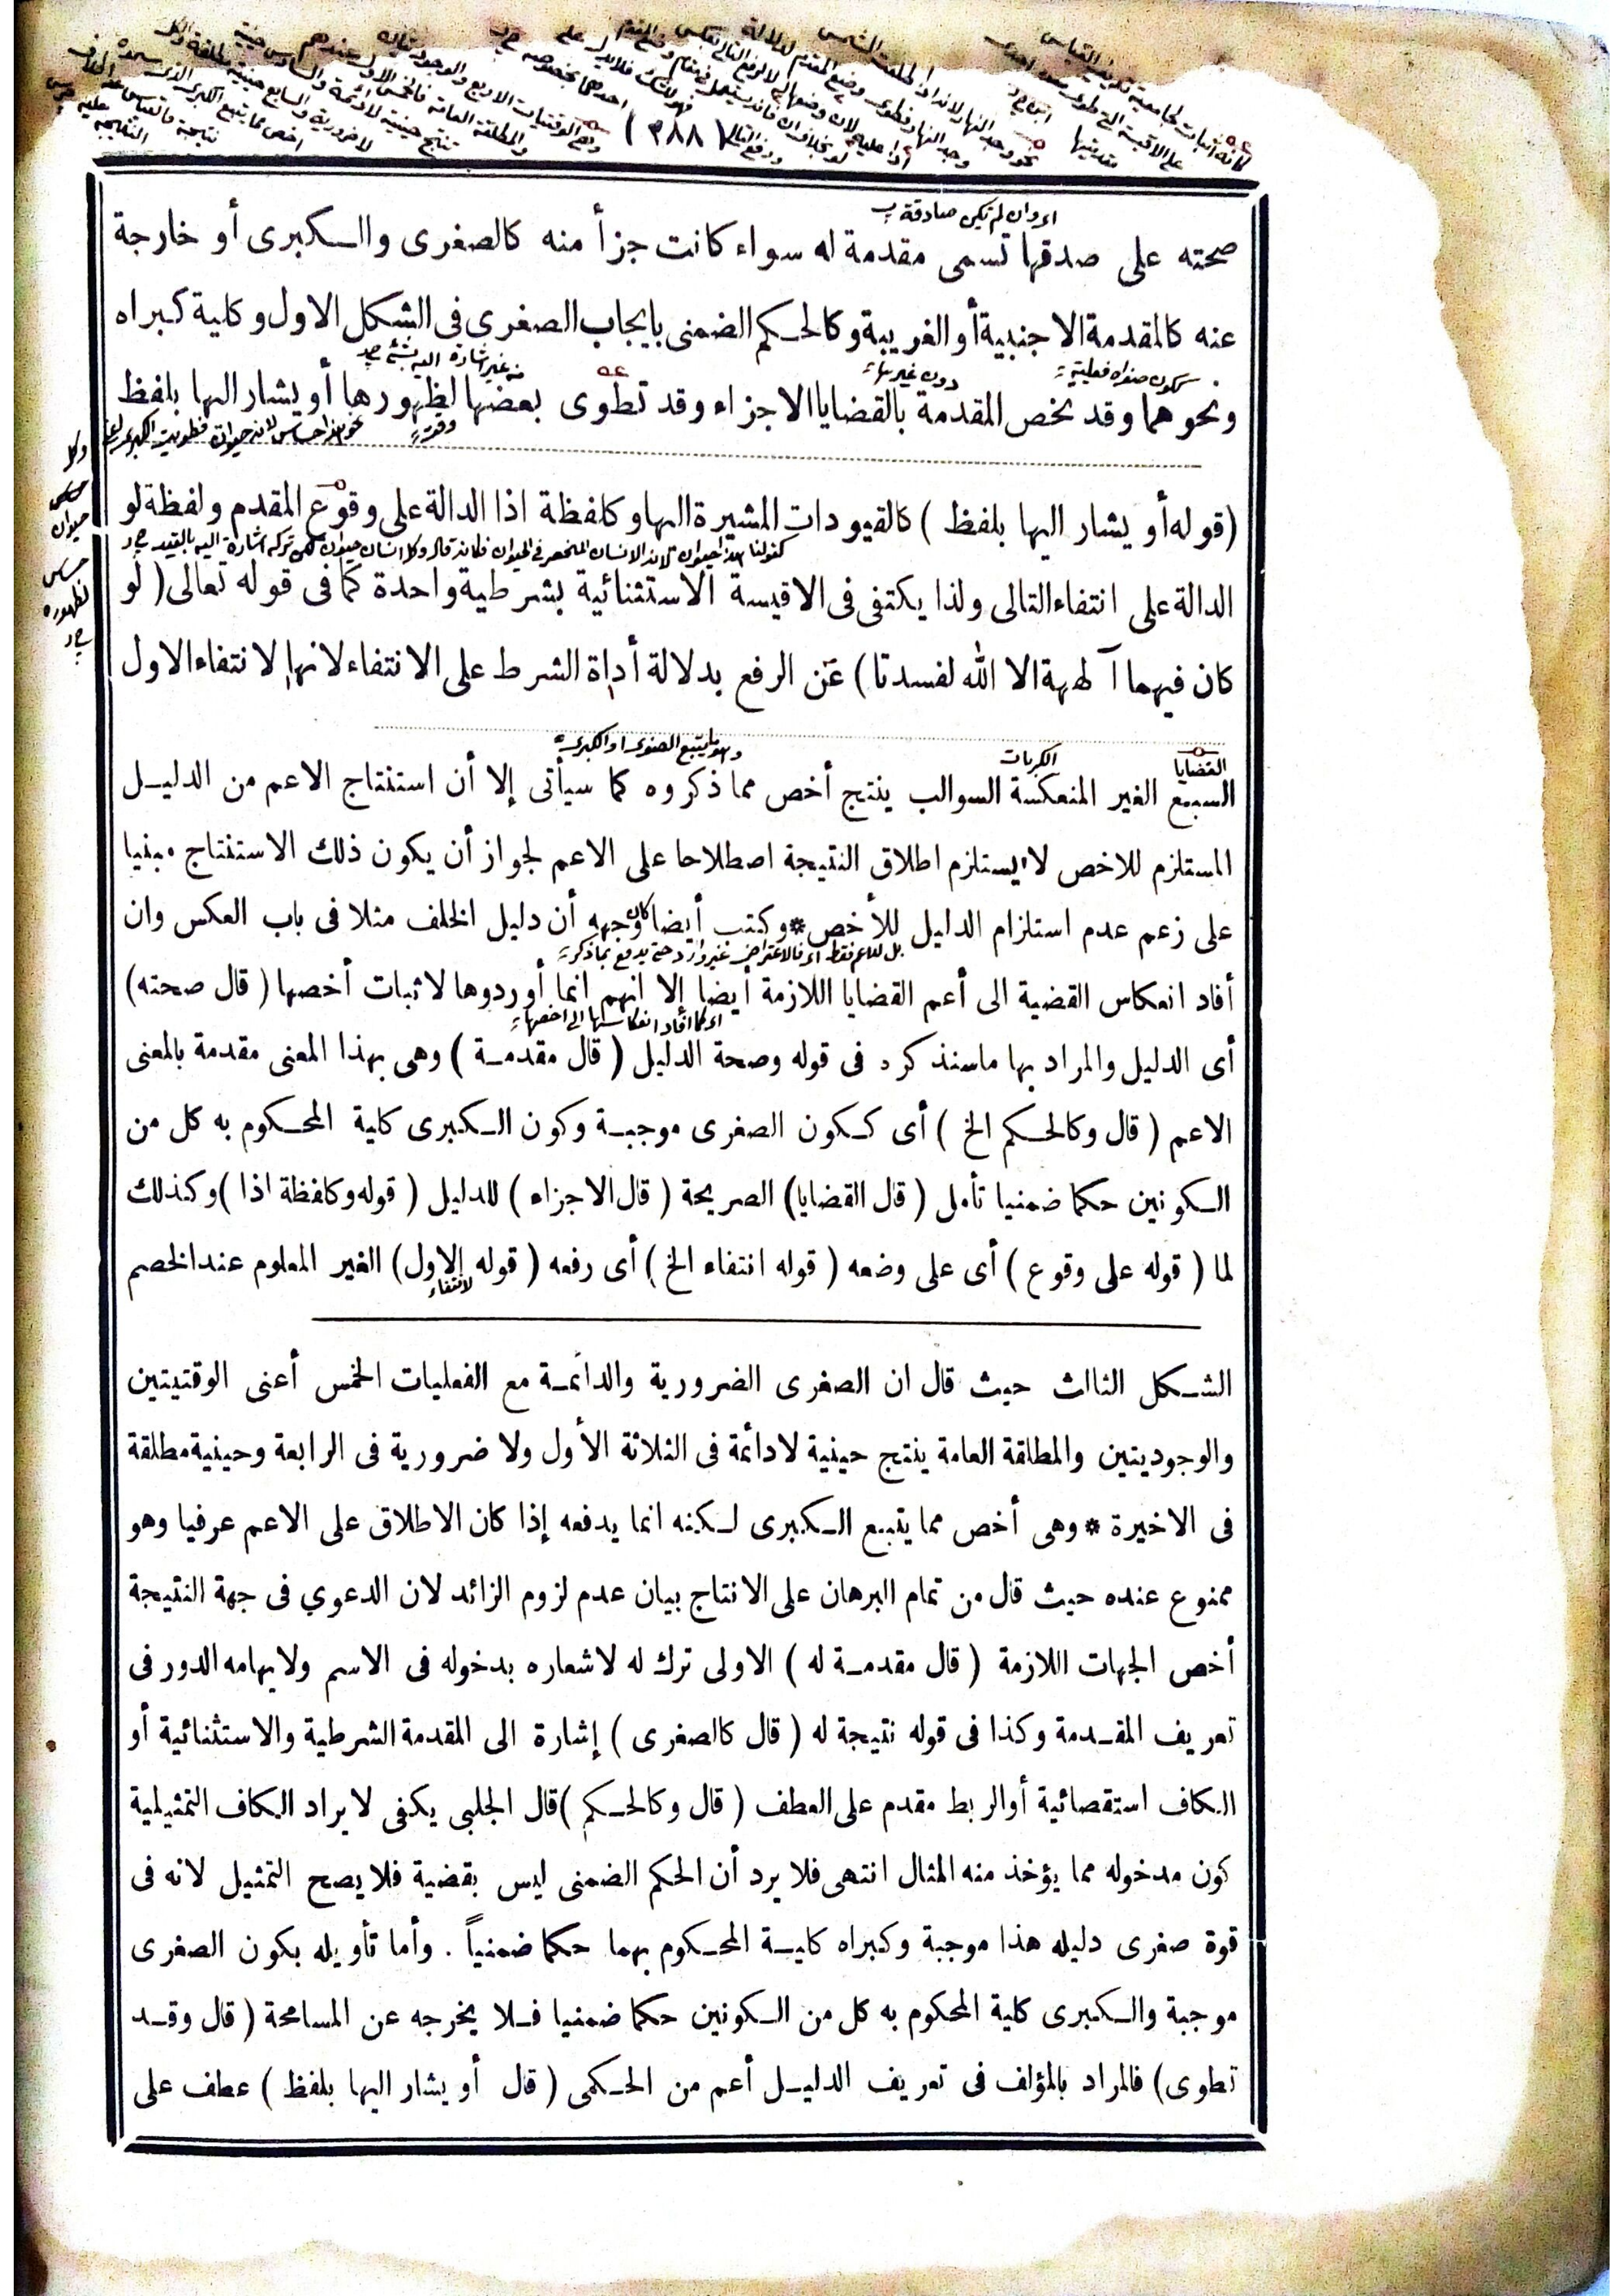 ( ٣٨٨ )
اى وان لم تكن صادقة
صحته على صدقها تسمى مقدمة له سواء كانت جزأ منه كالصغرى والكبرى أو خارجة
عنه كالمقدمة الاجنبية أو الغريبة وكالحكم الضمنى بايجاب الصغرى فى الشكل الاول وكلية كبراه
من غير اشارة اليه بشئ
دون غيرها
ونحوهما وقد يخص المقدمة بالقضايا الاجزاء وقد تطوى بعضها لظهورها أو يشار اليها بلفظ
وكل
حساس
حيوان
حساس
لظهوره
(قوله أو يشار اليها بلفظ ) كالقيودات المشيرة اليها وكلفظة اذا الدالة على وقوع المقدم ولفظة لو
الدالة على انتفاء التالى ولذا يكتفى فى الاقيسة الاستثنائية بشرطية واحدة كما فى قوله تعالى ( لو
كان فيهما آلهة الا الله لفسدتا ) عن الرفع بدلالة أداة الشرط على الانتفاء لانها لانتفاء الاول
القضايا
الكبريات
وهو ما يتبع الصغرى او الكبرى
السبع الغير المنعكسة السوالب ينتج أخص مما ذكروه كما سيأتى إلا أن استنتاج الاعم من الدليل
المستلزم للاخص لا يستلزم اطلاق النتيجة اصطلاحا على الاعم لجواز أن يكون ذلك الاستنتاج مبنيا
على زعم عدم استلزام الدليل للأخص * وكتب أيضا كان وجهه أن دليل الخلف مثلا فى باب العكس وان
بل للاعم فقط اى فالاعتراض غير وارد حتى يدفع بما ذكر
أفاد انعكاس القضية الى أعم القضايا اللازمة أيضا إلا انهم انما أوردوها لاثبات أخصها ( قال صحته)
اى كما افاد انعكاسها الى اخصها
أى الدليل والمراد بها ماسنذكره فى قوله وصحة الدليل ( قال مقدمة ) وهى بهذا المعنى مقدمة بالمعنى
الاعم ( قال وكالحكم الخ ) أى ككون الصغرى موجبة وكون الكبرى كلية المحكوم به كل من
الكونين حكما ضمنيا تأمل ( قال القضايا) الصريحة ( قال الاجزاء ) للدليل ( قوله وكلفظة اذا ) وكذلك
لما ( قوله على وقوع ) أى على وضعه ( قوله انتفاء الخ ) أى رفعه ( قوله الاول) الغير المعلوم عند الخصم
لانتفاء
الشكل الثالث حيث قال ان الصغرى الضرورية والدائمة مع الفعليات الخمس أعنى الوقتيتين
والوجوديتين والمطلقة العامة ينتج حينية لادائمة فى الثلاثة الأول ولا ضرورية فى الرابعة وحينية مطلقة
فى الاخيرة * وهى أخص مما يتبع الكبرى لكنه انما يدفعه إذا كان الاطلاق على الاعم عرفيا وهو
ممنوع عنده حيث قال من تمام البرهان على الانتاج بيان عدم لزوم الزائد لان الدعوي فى جهة النتيجة
أخص الجهات اللازمة ( قال مقدمة له ) الاولى ترك له لاشعاره بدخوله فى الاسم ولايهامه الدور فى
تعريف المقدمة وكذا فى قوله نتيجة له ( قال كالصغرى ) إشارة الى المقدمة الشرطية والاستثنائية أو
الكاف استقصائية أو الربط مقدم على العطف ( قال وكالحكم )قال الجلبى يكفى لايراد الكاف التمثيلية
كون مدخوله مما يؤخذ منه المثال انتهى فلا يرد أن الحكم الضمنى ليس بقضية فلا يصح التمثيل لانه فى
قوة صغرى دليله هذا موجبة وكبراه كلية المحكوم بهما حكما ضمنياً . وأما تأويله بكون الصغرى
موجبة والكبرى كلية المحكوم به كل من الكونين حكما ضمنيا فلا يخرجه عن المسامحة ( قال وقد
تطوى) فالمراد بالمؤلف فى تعريف الدليل أعم من الحكمى ( قال أو يشار اليها بلفظ ) عطف على